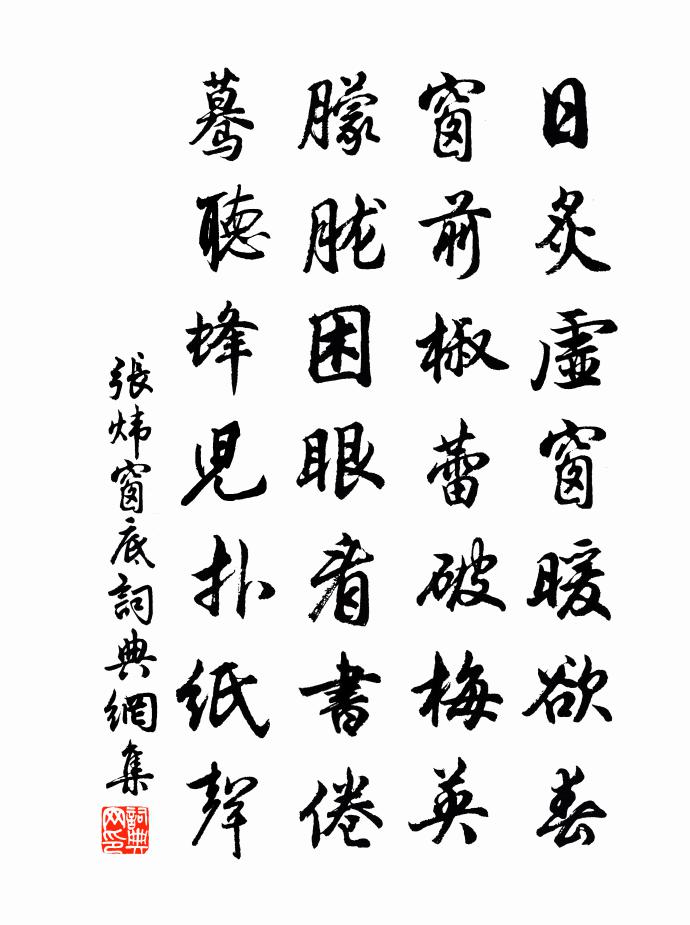 日炙虛窗暖欲春
窗前椒蕾破梅英
朦朧困眼看書倦
驀聽蜂兒扑紙聲
張煒窗底詞典網集
詞典网印